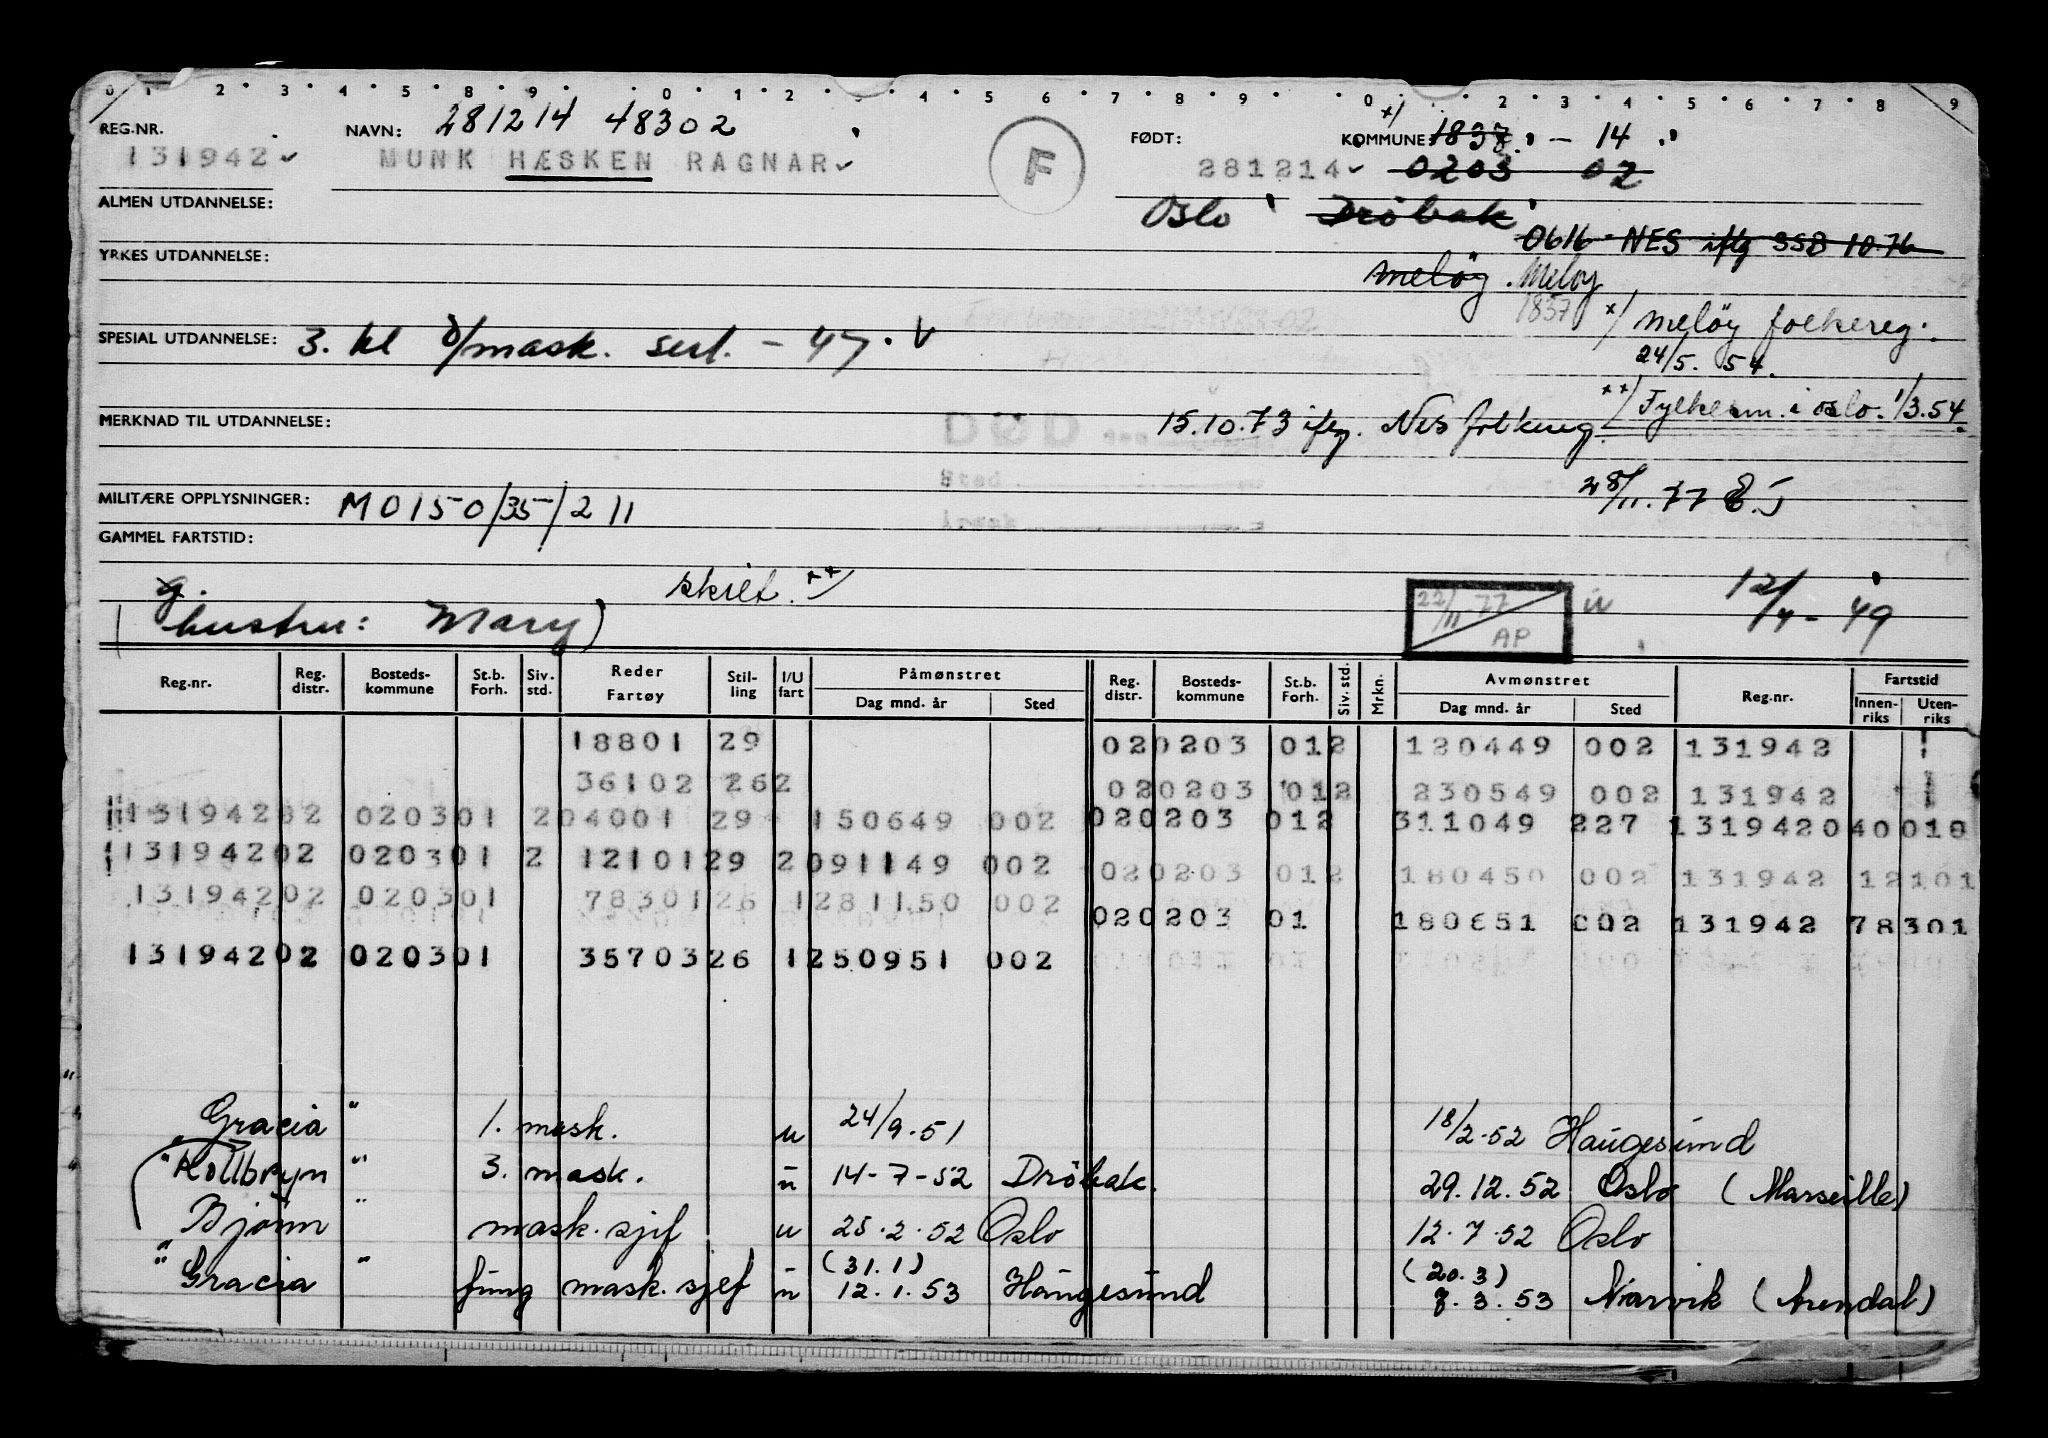 0 1 2 3 4 5 8 9 0 1 2 3 4 5 6 7 8 9 0 2 3 4 5 6 7 8 9
REG.NR. NAVN: 281214 48302 FØDT: KOMMUNE 1837 - 14
131942 MUNK HÆSKEN RAGNAR F 281214 0203 02
ALMEN UTDANNELSE: Oslo Dröbak
0616 NES iflg SSB 10.76
YRKES UTDANNELSE: Meløy . Meløy
1837 x/ Meløy folkereg.
SPESIAL UTDANNELSE: 3. kl mask. sert. - 47. V
24/5. 54.
xx/ Fylkesm. i oslo. 1/3.54.
MERKNAD TIL UTDANNELSE: DØD 15.10.73 ifg. Nes folkereg.
Sted
MILITÆRE OPPLYSNINGER: M0150/35/211 28/11.77 E.J
Årsak
GAMMEL FARTSTID:
g. skilt. xx/ 22/11 77 AP u 12/4 - 49
(hustru: Mary)
Reg.nr. Reg. distr. Bosteds- kommune St.b. Forh. Siv. std. Reder Fartøy Stil- ling I/U fart Påmønstret Dag mnd. år Sted Reg. distr. Bosteds- kommune St.b. Forh. Siv. std. Mrkn. Avmønstret Dag mnd. år Sted Reg.nr. Fartstid Innen- riks Uten- riks
18801 29 020203 012 120449 002 131942
36102 262 020203 012 230549 002 131942
13194202 020301 204001 29 150649 002 020203 012 311049 227 1319420 40 018
13194202 020301 2 12101 29 2 091149 002 020203 012 180450 002 131942 12101
13194202 020301 78301 26 1 281150 002 020203 01 180651 002 131942 78301
13194202 020301 35703 26 1 250951 002
Gracia " 1. mask. u 24/9.51 18/2.52 Haugesund
" Kollbryn " 3. mask. u 14-7-52 Dröbak. 29.12.52 Oslo (Marseille)
Björn " mask.sjef u 25.2.52 Oslo 12.7.52 Oslo
(31.1) (20.3)
" Gracia " fung mask.sjef u 12.1.53 Haugesund 7.3.53 Narvik (Arendal)